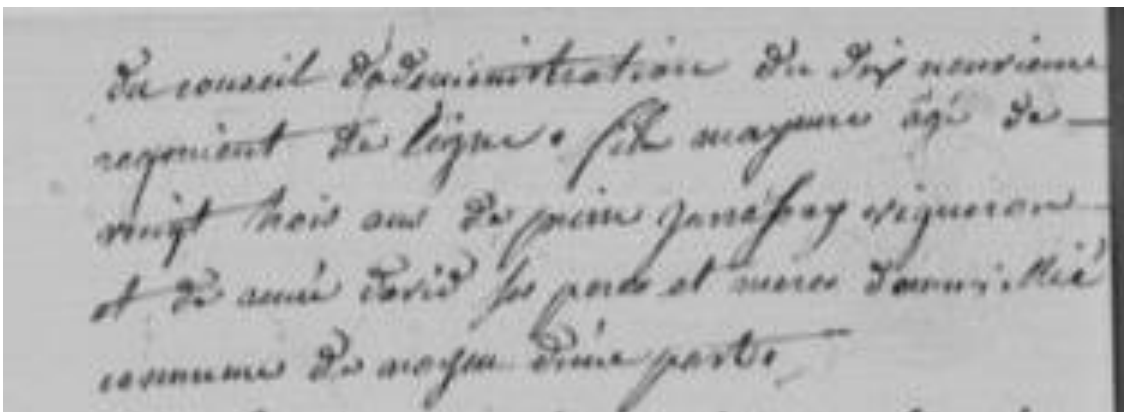 du conseil d'administration du dix neuvieme
regiment de ligne. fils mageure âgé de
vingt trois ans de pierre vigneron
et de david ses peres et meres domicillié
commune de d'une part.